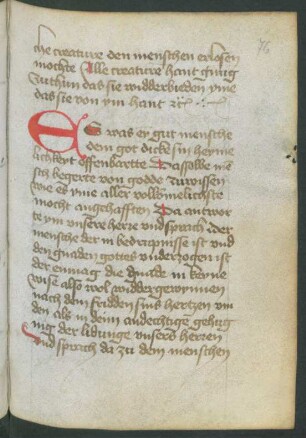 76
che creature den menschen erlosen
mochte Alle creature hant gnug
zuthun das sie widderbieden yme
das sie von ym hant etc
Es was ey gut mensche
dem got dicke sin heyme
lichkeyt offenbartte Dasselbe me
sch begerte von godde zuwissen
wie es yme aller volkymelichste
mocht angehafften Da antwor
te ym vnsere herre vnd sprach der
mensche der in bedrapnisse ist vnd
den gnaden gottes vnderzogen ist
der enmag die gnade in keyne
wise also wol widdergewynnen
nach dem fridden sins hertzen vin
den als in deiner andechtige gehug
nig der lidunge vnsers herren
Vnd sprach da zu dem menschen